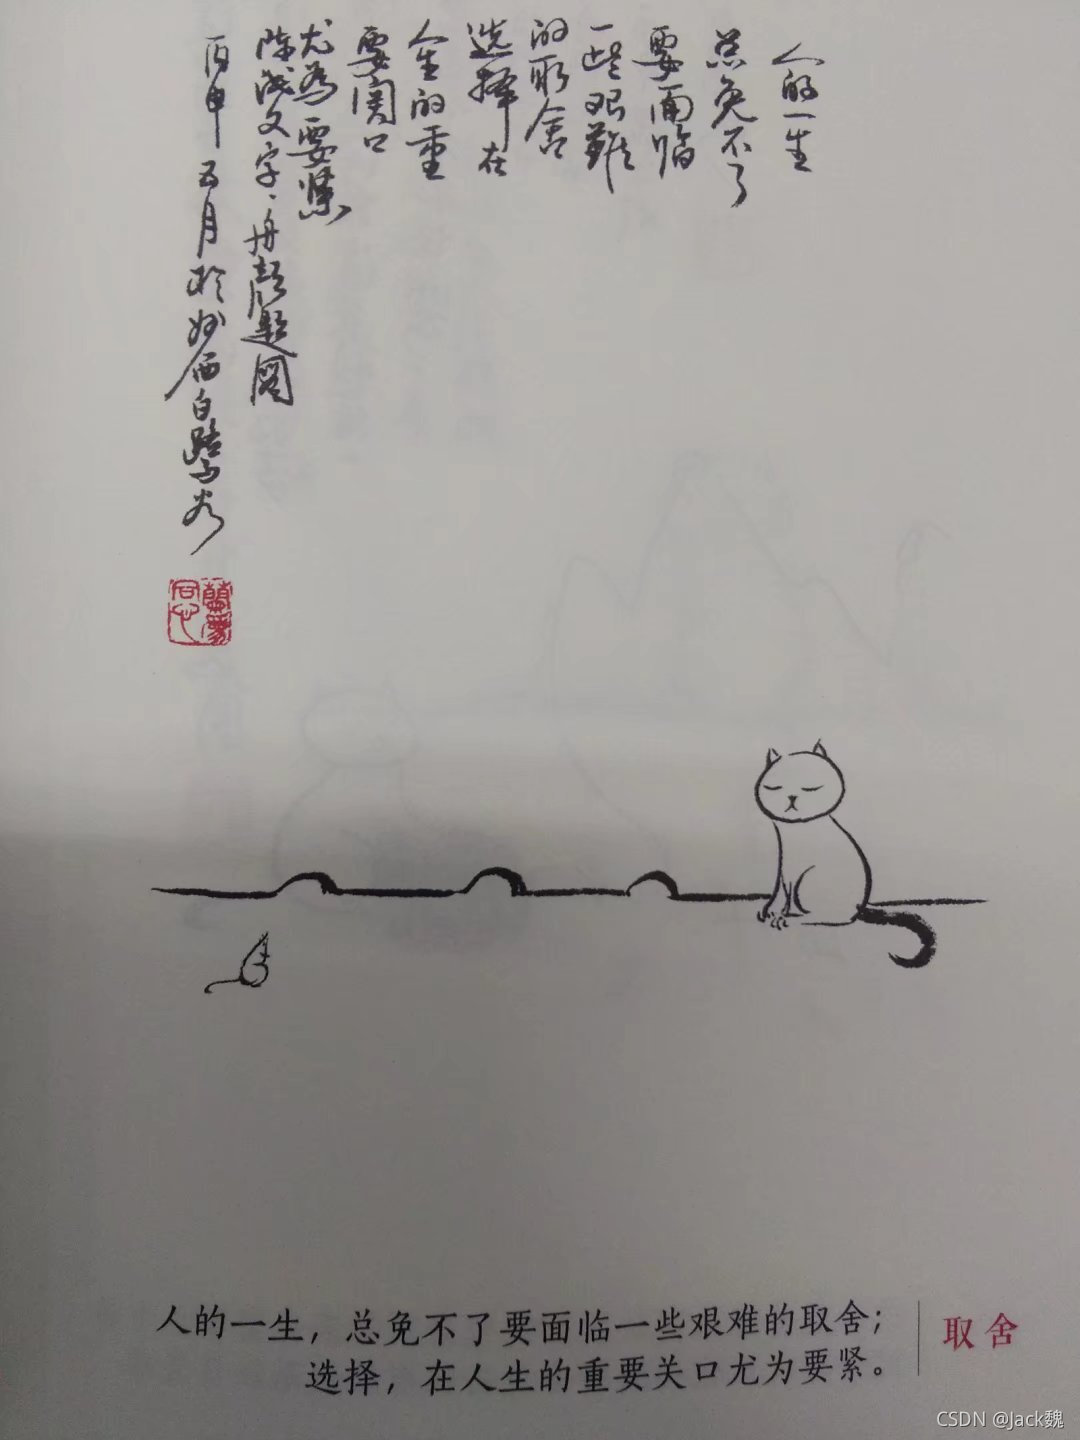 人的一生
总免不了
要面临
一些艰難
的取舍
选择在
人生的重
要関口
尤为要紧
文字、题图
丙申五月於妙西白鹭谷
人的一生，总免不了要面临一些艰难的取舍；
选择，在人生的重要关口尤为要紧。
取舍
CSDN @Jack魏